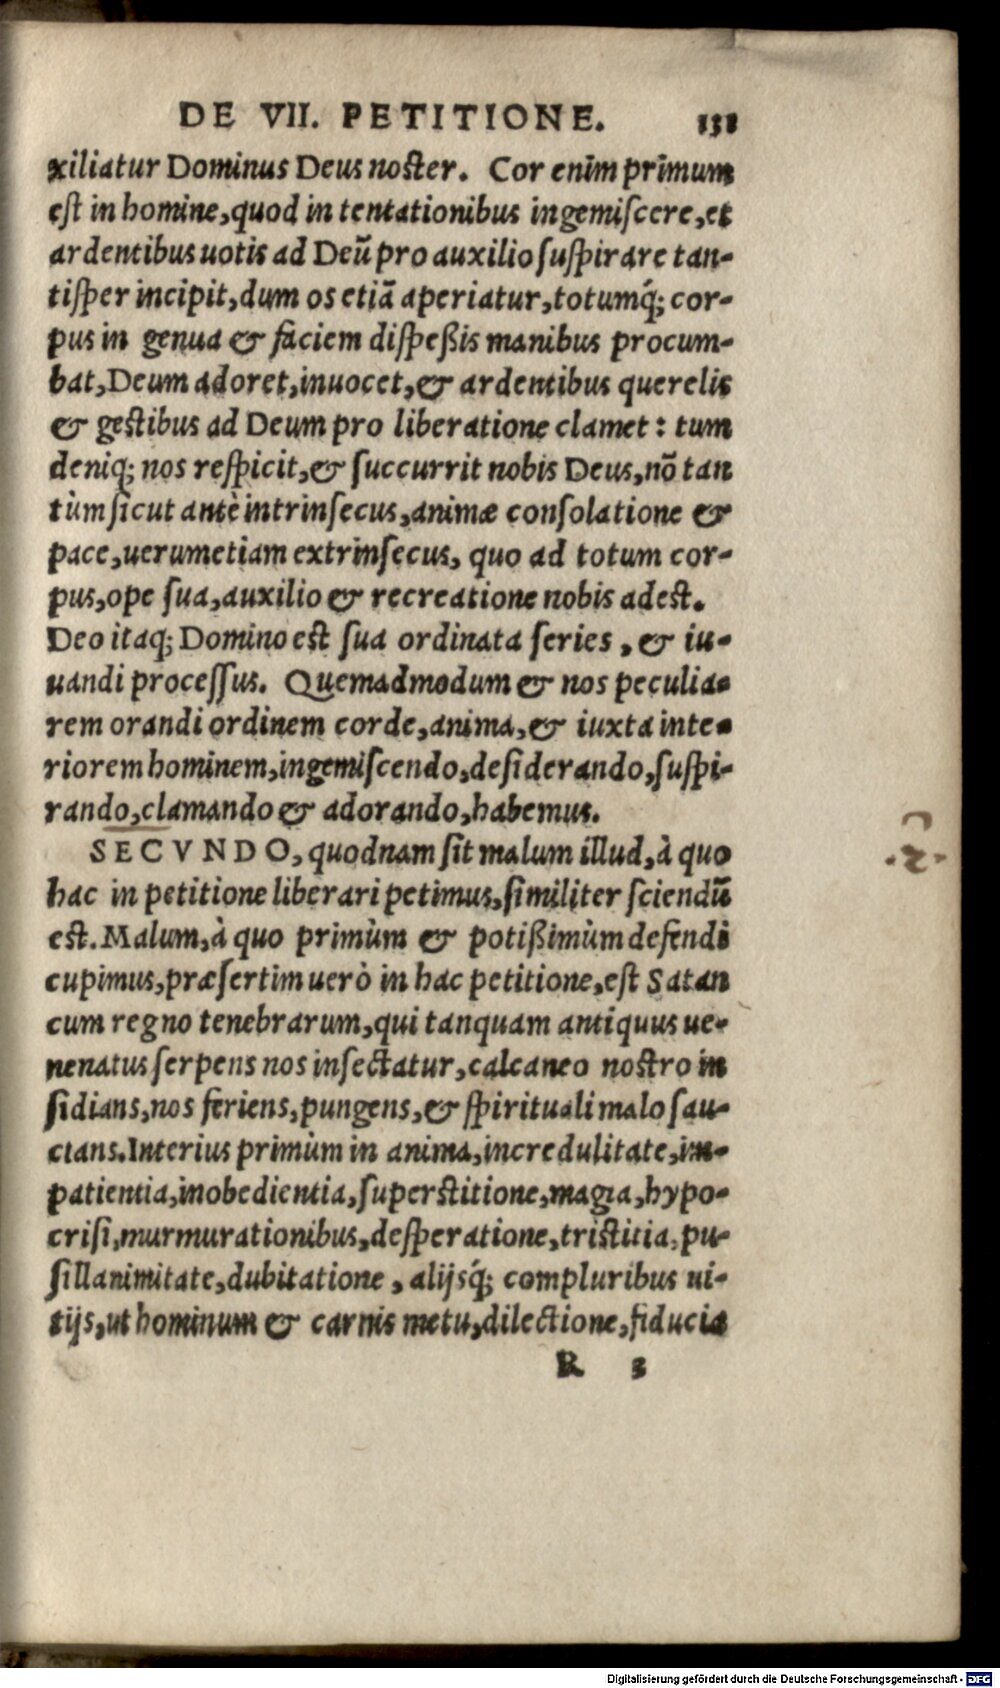 DE VII. PETITIONE. 131
xiliatur Dominus Deus noster. Cor enim primum
est in homine, quod in tentationibus ingemiscere, et
ardentibus uotis ad Deū pro auxilio suspirare tan-
tisper incipit, dum os etiā aperiatur, totumq́; cor-
pus in genua & faciem dispeßis manibus procum-
bat, Deum adoret, inuocet, & ardentibus querelis
& gestibus ad Deum pro liberatione clamet: tum
deniq; nos respicit, & succurrit nobis Deus, nō tan
tùm sicut antè intrinsecus, animæ consolatione &
pace, uerumetiam extrinsecus, quo ad totum cor-
pus, ope sua, auxilio & recreatione nobis adest.
Deo itaq; Domino est sua ordinata series, & iu-
uandi processus. Quemadmodum & nos peculia-
rem orandi ordinem corde, anima, & iuxta inte-
riorem hominem, ingemiscendo, desiderando, suspi-
rando, clamando & adorando, habemus.
SECVNDO, quodnam sit malum illud, à quo
hac in petitione liberari petimus, similiter sciendū
est. Malum, à quo primùm & potißimùm defendi
cupimus, præsertim uerò in hac petitione, est Satan
cum regno tenebrarum, qui tanquam antiquus ue-
nenatus serpens nos insectatur, calcaneo nostro in
sidians, nos feriens, pungens, & spirituali malo sau-
cians. Interius primùm in anima, incredulitate, im-
patientia, inobedientia, superstitione, magia, hypo-
crisi, murmurationibus, desperatione, tristitia, pu-
sillanimitate, dubitatione, alijsq́; compluribus ui-
tijs, ut hominum & carnis metu, dilectione, fiducia
R 3
.2.
Digitalisierung gefördert durch die Deutsche Forschungsgemeinschaft - DFG